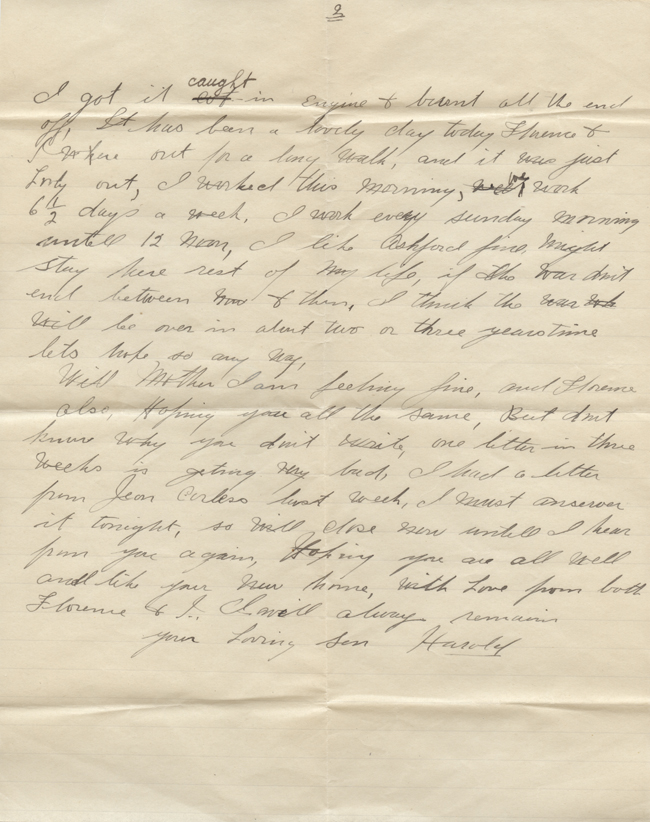 2
I got it ~~cot~~ caught in engine & burnt all the end
off, It has been a lovely day today Florence &
I where out for a long walk, and it was just
Lovly out, I worked this morning, we work
6 1/2 days a week. I work every sunday morning
untill 12 noon, I like Ashford fine, might
stay here rest of my life, if the war dont
end between now & then, I think the war
will be over in about two or three years time
lets hope so any way,
Well Mother I am feeling fine, and Florence
also, Hoping you all the same, But dont
know why you dont write, one letter in three
weeks is getting very bad, I had a letter
from Jean Corless last week, I must answer
it tonight, so will close now untill I hear
from you again, Hoping you are all well
and like your new home, with Love from both
Florence & I. I will always remain
your Loving son Harold